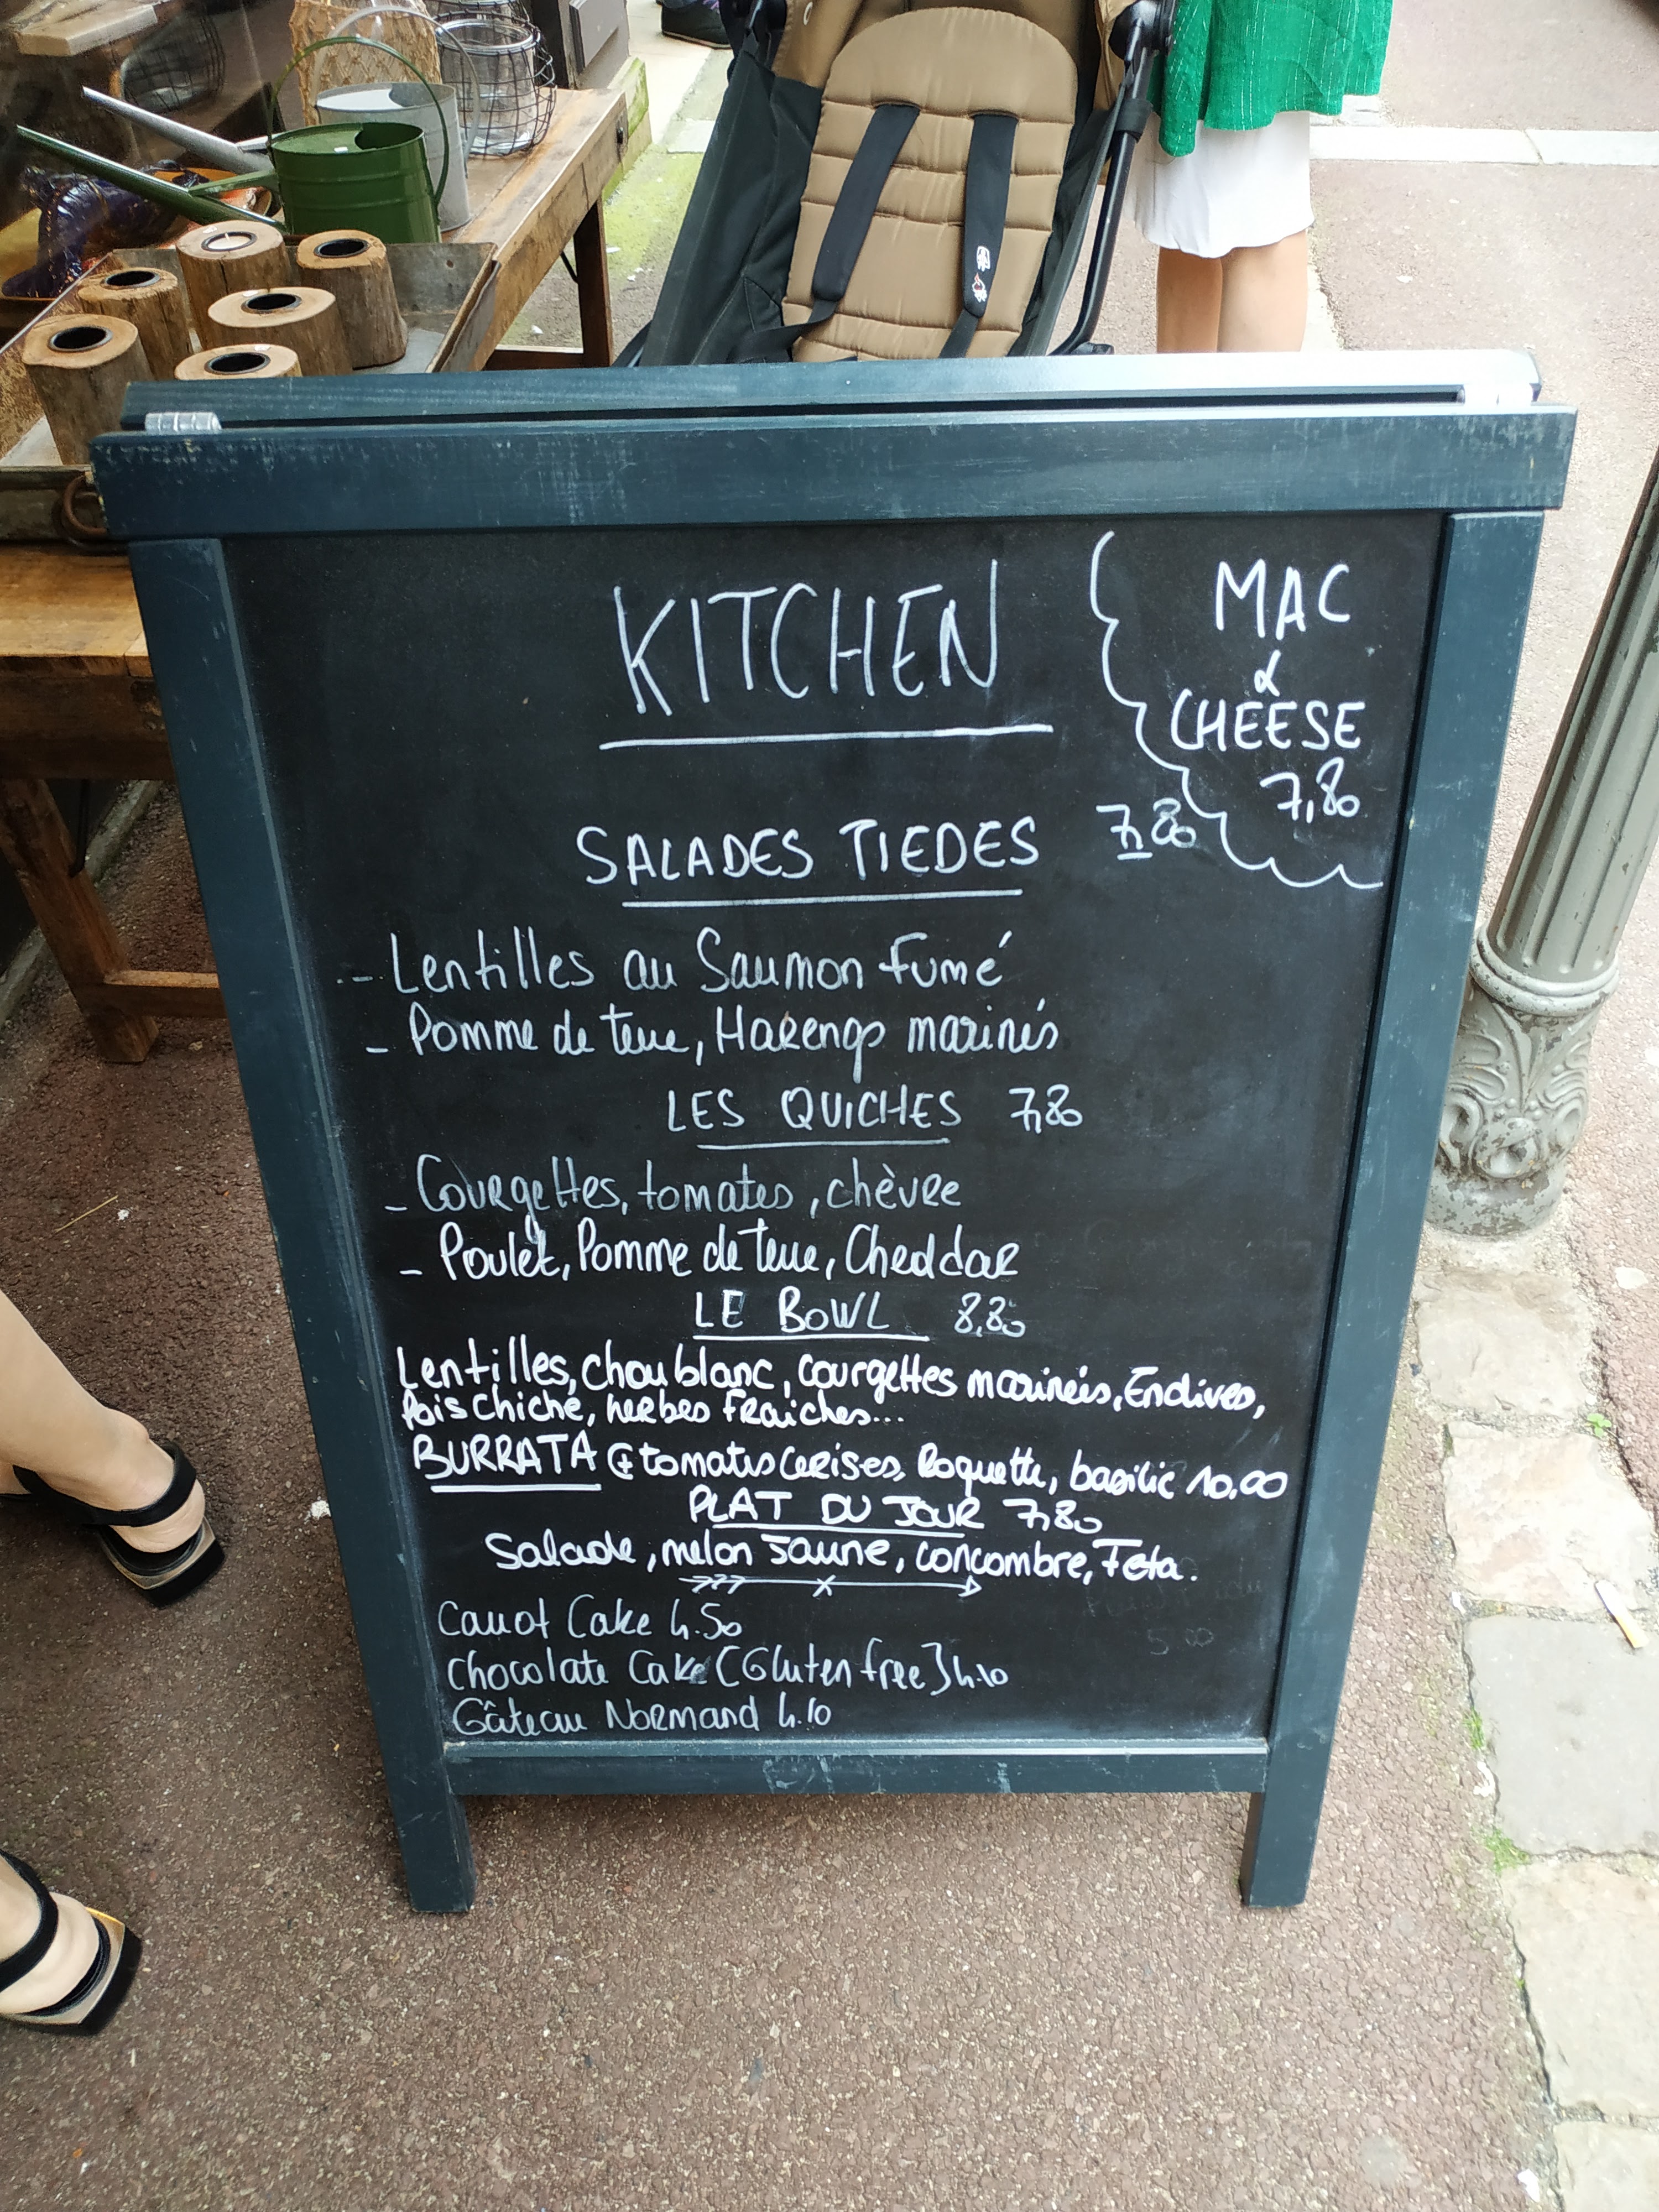 KITCHEN
MAC
&
CHEESE
7,80
SALADES TIEDES 7,80
- Lentilles au Saumon fumé
- Pomme de terre, Harengs marinés
LES QUICHES 7,80
- Courgettes, tomates, chèvre
- Poulet, Pomme de terre, Cheddar
LE BOWL 8,80
Lentilles, chou blanc, courgettes marinées, Endives,
Pois chiche, herbes fraîches...
BURRATA & tomates cerises, Roquette, basilic 10,00
PLAT DU JOUR 7,80
Salade, melon jaune, concombre, Feta.
Carrot Cake 4.50
chocolate Cake (Gluten free) 4.10
Gâteau Normand 4.10